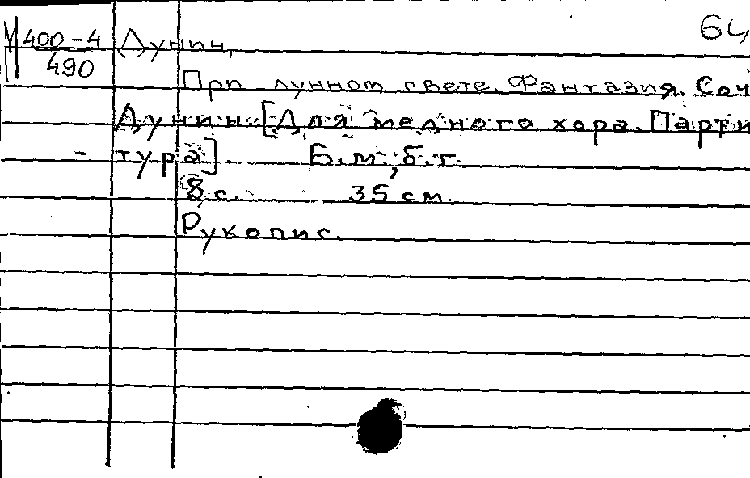 400-4 Дунин,
490
При лунном свете. Фантазия. Соч
Дунин [Для медного хора. Парти
тура] Б.м., б.г.
8 с. 35 см.
Рукопис.